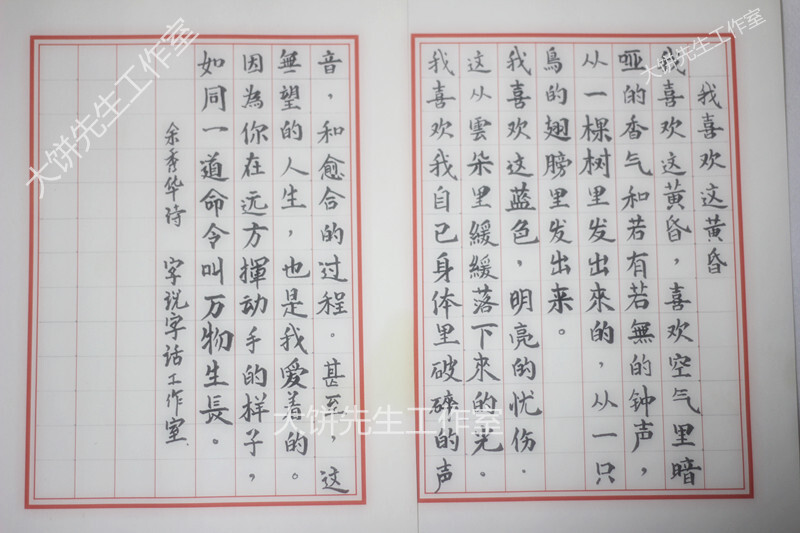 我喜欢这黄昏
我喜欢这黄昏，喜欢空气里暗
哑的香气和若有若無的钟声，
从一棵树里发出來的，从一只
鳥的翅膀里发出来。
我喜欢这蓝色，明亮的忧伤.
这从雲朵里緩緩落下來的光。
我喜欢我自己身体里破碎的声
音，和愈合的过程。甚至，这
無望的人生，也是我爱着的。
因為你在远方揮动手的样子，
如同一道命令叫万物生長。
余秀华诗 字说字话工作室
大饼先生工作室
大饼先生工作室
大饼先生工作室